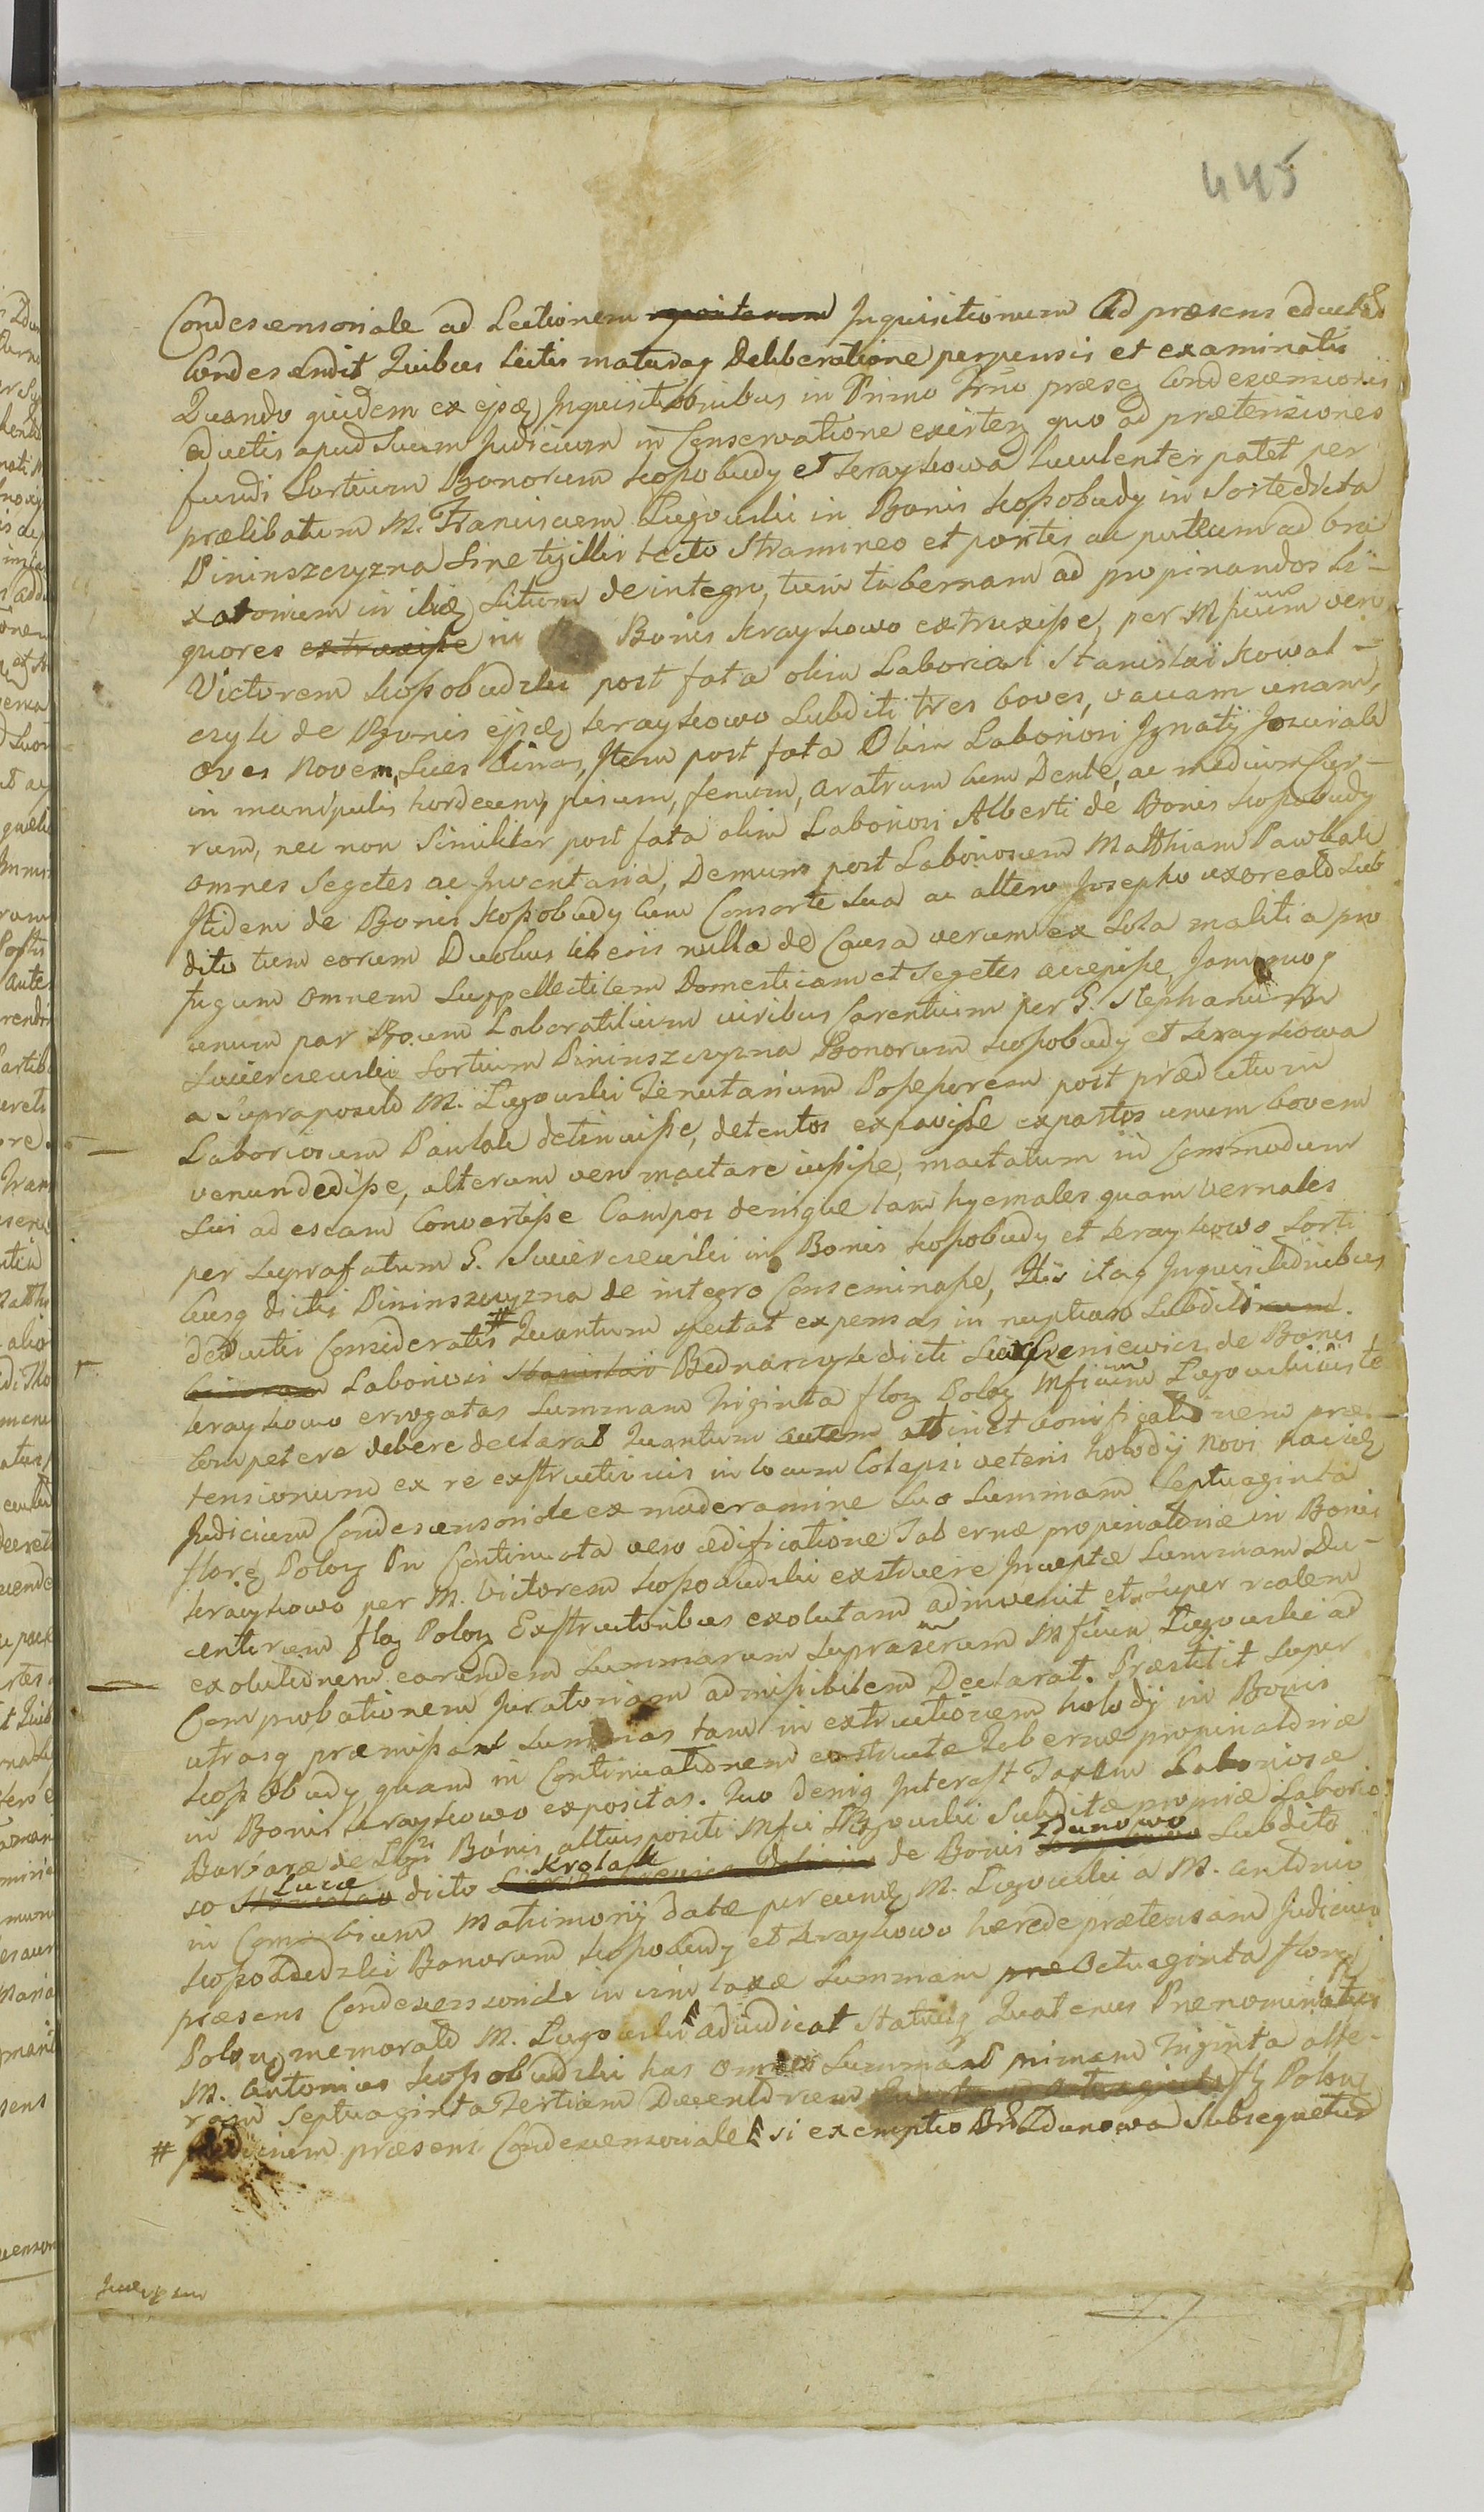 445
Condescensoriale ad Lectionem Inquisitionum ad præsens eductas
Condescendit Quibus Lectis maturaq Deliberatione perpensis et examinatis
Quando quidem ex ejsdę Inquisitionibus in Primo Trno præsę Condescensionis
eductis apud suum Judicium in Conservatione existeñ quo ad prætensiones
fundi Sortium Bonorum Kossobudy et Krayskowo luculenter patet per
prælibatum M. Franciscum Lugowski in Bonis Kossobudy in Sorte dicta
Pininszczyzna sine tigillis tecto Stramineo et portis ac puteum ad bra
xatorium in ibidę situm de integro, tum tabernam ad propinandos Li-
quores extruxisse in Bonis Krayskowo extruxisse, per Mficum vero
Victorem Kossobudzki post fata olim Laboriosi Stanislai Kowal-
czyk de Bonis ejsdę Krayskowo Subditi tres boves, vaccam unam,
oves novem, Sues binas, Item post fata Olim Laboriosi Ignatij Jozwiak
in manipulis hordeum, pisum, fenum, aratrum cum Dente, ac medium cur-
rum, nec non Similiter post fata olim Laboriosi Alberti de Bonis Kossobudy
omnes Segetes ac Inventaria, Demum post Laboriosum Matthiam Pawlak
Itidem de Bonis Kossobudy cum Consorte sua ac altero Josepho uxorato Sub
dito tum eorum Duobus liberis nulla de Causa verum ex sola malitia pro
fugum omnem Suppellectilem Domesticam et Segetes accepisse,
unum par Boum Laboratilium viribus Carentium per G. Stephanum
Swierczewski Sortium Pininszczyzna Bonorum Kossobudy et Krayskowo
a supraposito M. Lugowski Tenutarium Possessorem post prædictum
Laboriosum Pawlak detinuisse, detentos expavisse expastos unum bovem
venundedisse, alterum vero mactare iussisse, mactatum in Commodum
sui ad escam Convertisse Campos denique tam hyemales quam vernales
per suprafatum G. Swierczewski in Bonis Kossobudy et Krayskowo Sorti
busq dictis Pininszczyzna de integro Conseminasse, His itaq Inquisitionibus
deductis Consideratis # Quantum spectat expensas in nuptias Subditi
Laboriosi Stanislai Bednarczyk dicti de Bonis
Krayskowo errogatas Summam Triginta floę Poloę Mficum Lugowski iuste
Competere debere declarat Quantum autem attinet bonificationem præ-
tensionum ex re exstructionis in locum Colapsi veteris holodij novi
Judicium Condescensoriale ex moderamine suo Summam Septuaginta
floreę Poloę Pn Continuata vero ædificatione Tabernæ propinatoriæ in Bonis
Krayskowo per M. Victorem Kossobudzki exstruere Inceptæ Summam Du-
centorum floę Poloę Exstructoribus exolutam adinvenit et super realem
exolutionem earundem Summarum suprascrum Mficum Lugowski ad
Comprobationem Juratoriam admissibilem Declarat. Præstitit super
utrasq præmissas Summas tam in extructionem holodij in Bonis
Kossobudy quam in Continuationem exstructæ Tabernæ propinatoriæ
in Bonis Krayskowo expositas. Quo deniq Interest Taxam Laboriosæ
Barbaræ de Bonis altius positi Mfici Lugowski Subditæ propriæ Laborio
so Stanislao Lucæ dicto Krolak de Bonis Zdunowo Subdito
in Connubium Matrimonij datæ per eundę M. Lugowski a M. Antonio
Kossobudzki Bonorum Kossobudy et Krayskowo hærede prætensam Judicium
præsens Condescensoriale in vim taxæ Summam Octuaginta floreę
Poloę memorato M. Lugowski adiudicat Statuitq Quatenus Prænominatus
M. Antonius Kossobudzki has omnes Summas primam Triginta alte-
ram Septuaginta Tertiam Ducentorum flę Poloę
# Judicium præsens Condescensoriale si exemptio Zdunowo Subsequetur